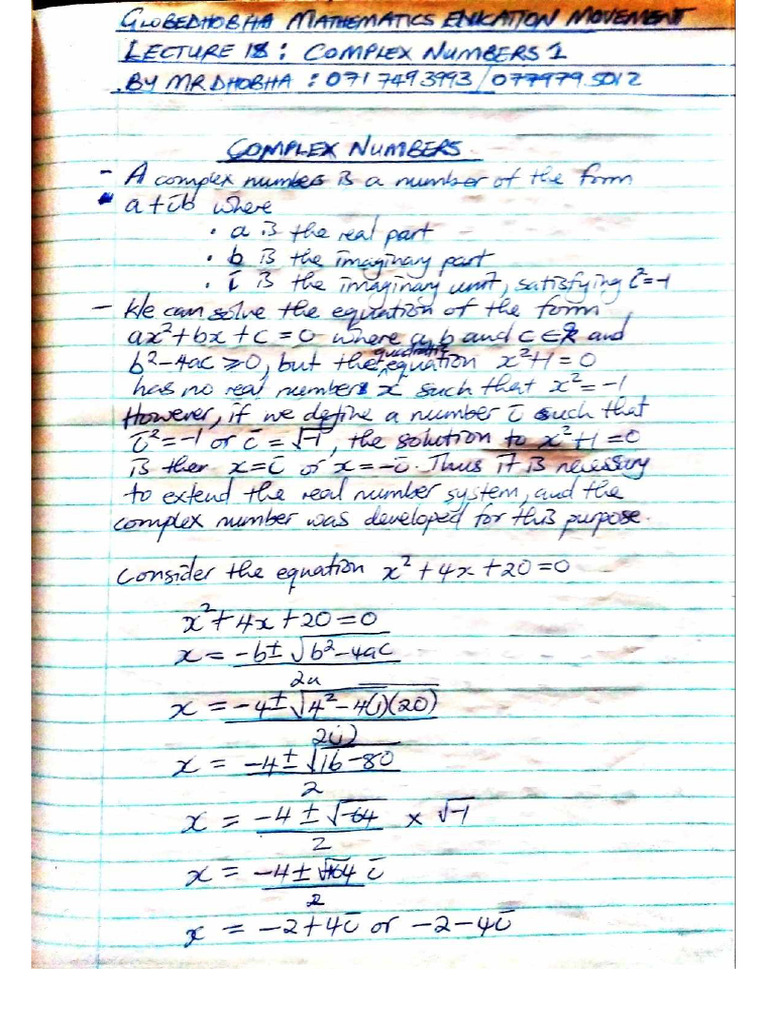 GLOBEDHOBHA MATHEMATICS EDUCATION MOVEMENT
LECTURE 18 : COMPLEX NUMBERS 1
BY MR DHOBHA : 071 749 3993 / 077979 5012
COMPLEX NUMBERS
- A complex number is a number of the form
a+ib where
• a is the real part
• b is the imaginary part
• i is the imaginary unit, satisfying i²=-1
- We can solve the equation of the form
ax²+bx+c=0 where a, b and c ∈ ℝ and
b²-4ac ≥0, but the quadratic equation x²+1=0
has no real numbers x such that x²=-1
However, if we define a number i such that
i²=-1 or i=√-1, the solution to x²+1=0
is then x=i or x=-i. Thus it is necessary
to extend the real number system, and the
complex number was developed for this purpose.
Consider the equation x²+4x+20=0
x²+4x+20=0
x = -b±√b²-4ac
2a
x = -4±√4²-4(1)(20)
2(1)
x = -4±√16-80
2
x = -4±√64 × √-1
2
x = -4±√64 i
2
x = -2+4i or -2-4i